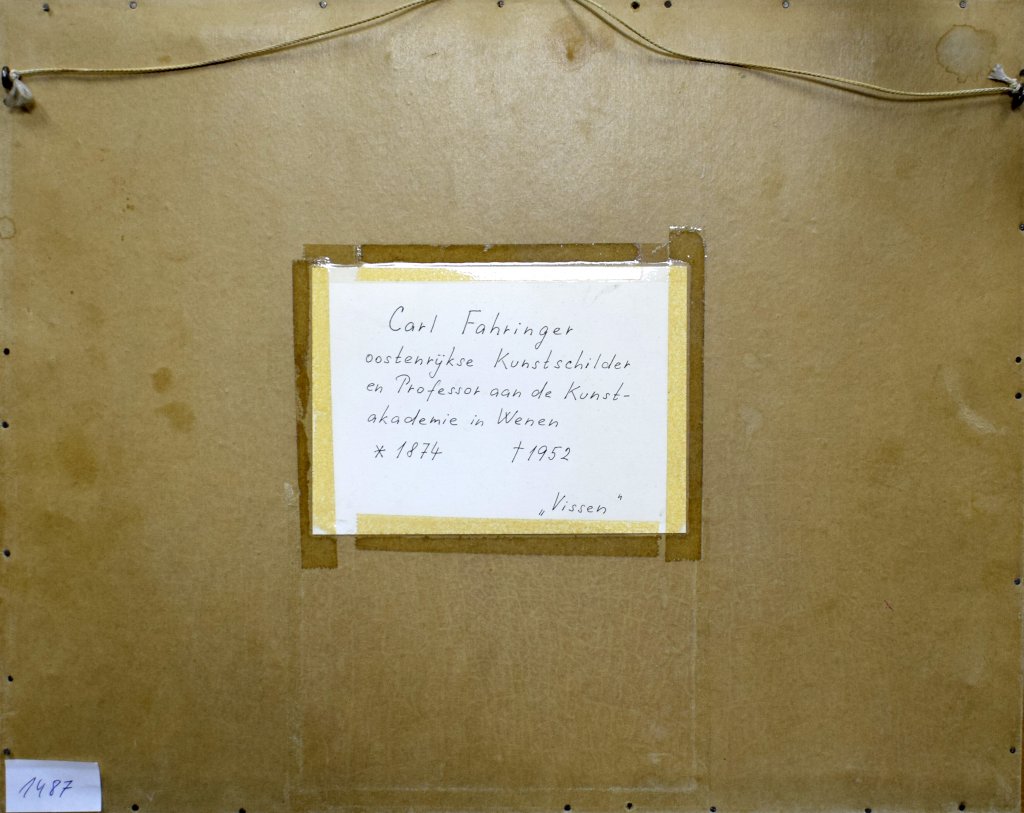 Carl Fahringer
oostenrijkse Kunstschilder
en Professor aan de Kunst-
akademie in Wenen
* 1874 † 1952
„Vissen"
1487